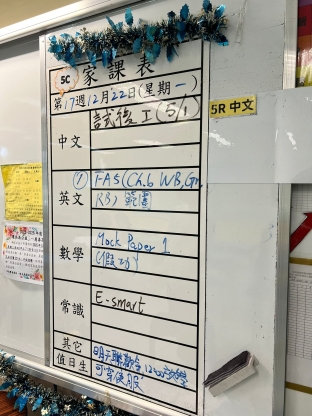 5C 家課表
第17週12月22日(星期一)
試後工(5/1)
中文
5R 中文
英文
FAS(Ch.6 WB, Gr
RB) 範圍
數學
Mock Paper 1
(假功)
常識
E-smart
其它
值日生
明天聯歡會12:00放學
可穿便服